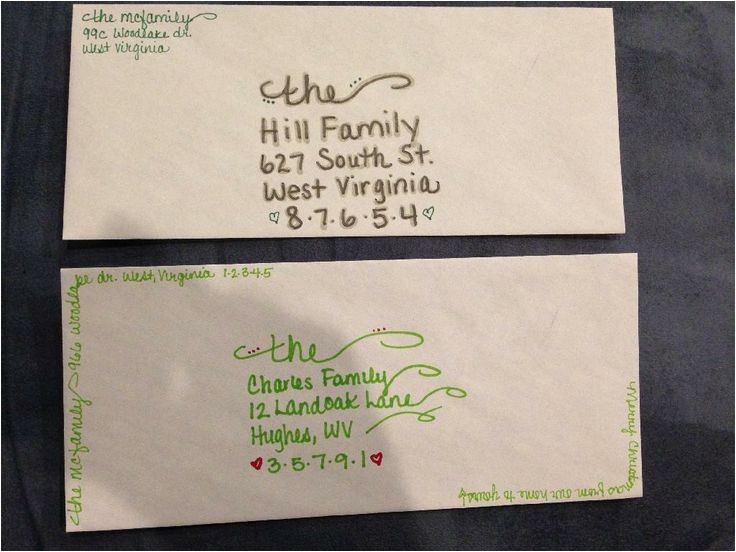 the mcfamily
99c Woodlake dr.
West Virginia
the
Hill Family
627 South St.
West Virginia
8.7.6.5.4
the mcfamily 966 Woodlake dr. West, Virginia 1.2.3.4.5
the
Charles Family
12 Landoak Lane
Hughes, WV
3.5.7.9.1
Merry Christmas from our home to yours!